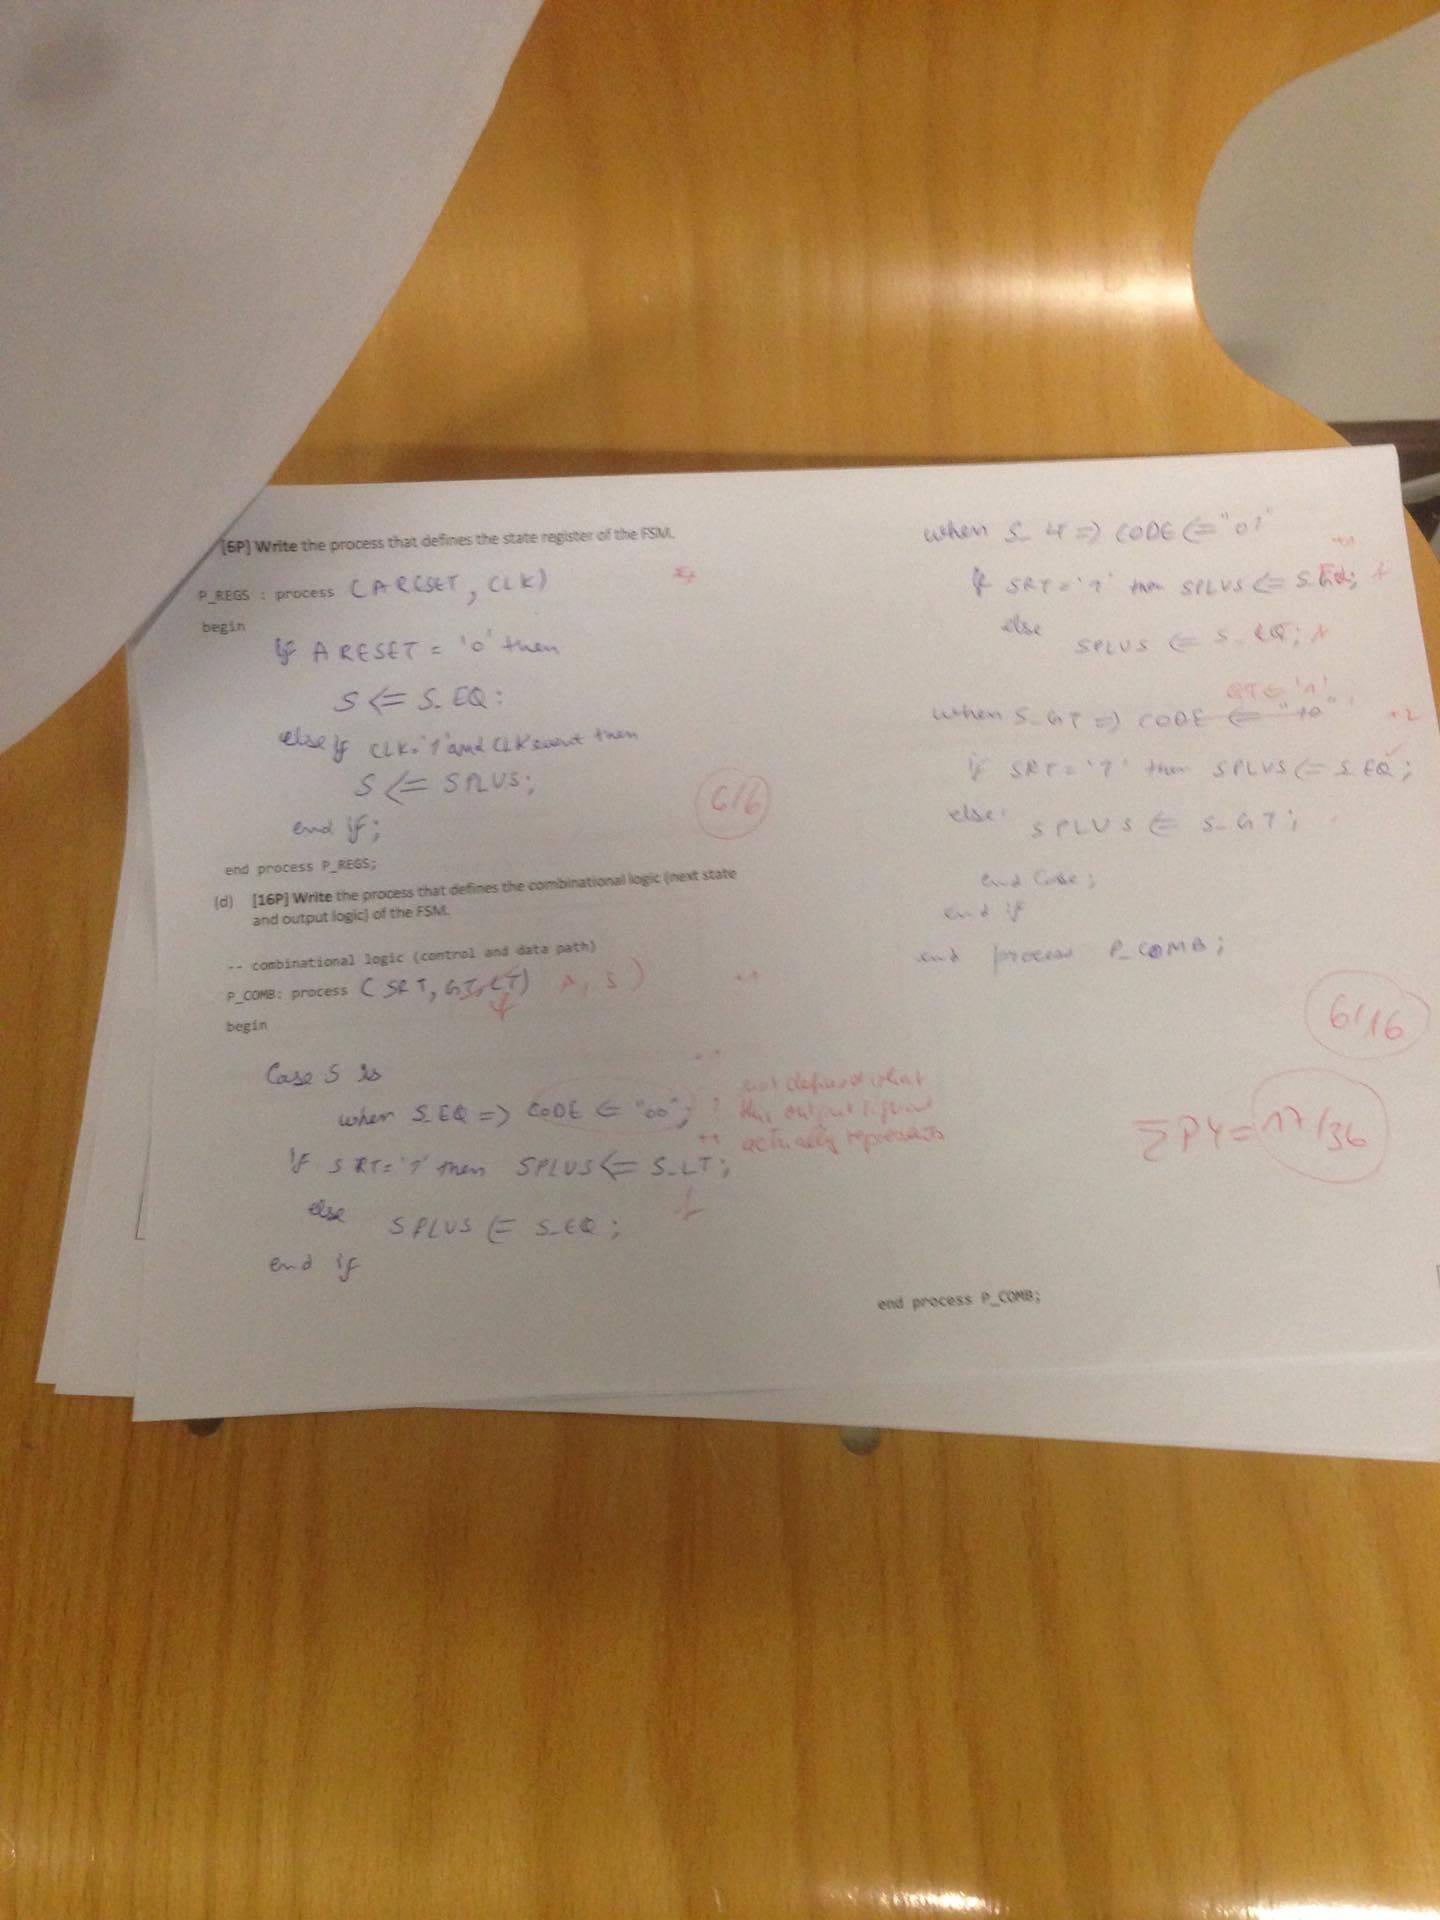 [6P] Write the process that defines the state register of the FSM.
P_REGS : process (ARESET, CLK)
begin
if ARESET = '0' then
S <= S_EQ;
else if CLK='1' and CLK'event then
S <= SPLUS;
end if;
6/6
end process P_REGS;
(d) [16P] Write the process that defines the combinational logic (next state
and output logic) of the FSM.
-- combinational logic (control and data path)
P_COMB: process (SRT, GT, LT) , S)
begin
Case S is
when S_EQ => CODE <= "00";
not defined what
this output signal
actually represents
if SRT='1' then SPLUS <= S_LT;
else SPLUS <= S_EQ;
end if
when S_LT => CODE <= "01"
if SRT='1' then SPLUS <=
else
SPLUS <= S_EQ;
GT <= '1'
when S_GT => CODE <= "10"
+2
if SRT='1' then SPLUS <= S_EQ;
else SPLUS <= S_GT;
end Case;
end if
end process P_COMB;
6/16
ΣP4=17/36
end process P_COMB;